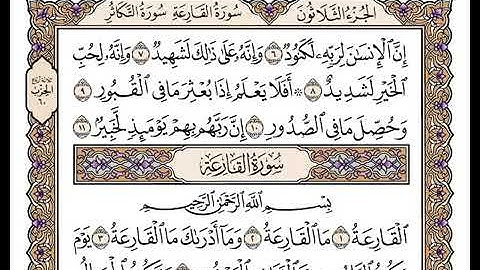 الجُزْءُ الثَّلَاثُونَ سُورَةُ القَارِعَةِ سُورَةُ التَّكَاثُرِ
إِنَّ ٱلْإِنسَٰنَ لِرَبِّهِۦ لَكَنُودٌ ٦ وَإِنَّهُۥ عَلَىٰ ذَٰلِكَ لَشَهِيدٌ ٧ وَإِنَّهُۥ لِحُبِّ
ٱلْخَيْرِ لَشَدِيدٌ ٨ ۞ أَفَلَا يَعْلَمُ إِذَا بُعْثِرَ مَا فِي ٱلْقُبُورِ ٩
وَحُصِّلَ مَا فِي ٱلصُّدُورِ ١٠ إِنَّ رَبَّهُم بِهِمْ يَوْمَئِذٍ لَّخَبِيرٌ ١١
سُورَةُ القَارِعَةِ
بِسْمِ ٱللَّهِ ٱلرَّحْمَٰنِ ٱلرَّحِيمِ
ٱلْقَارِعَةُ ١ مَا ٱلْقَارِعَةُ ٢ وَمَآ أَدْرَىٰكَ مَا ٱلْقَارِعَةُ ٣ يَوْمَ
الحزب
٦٠